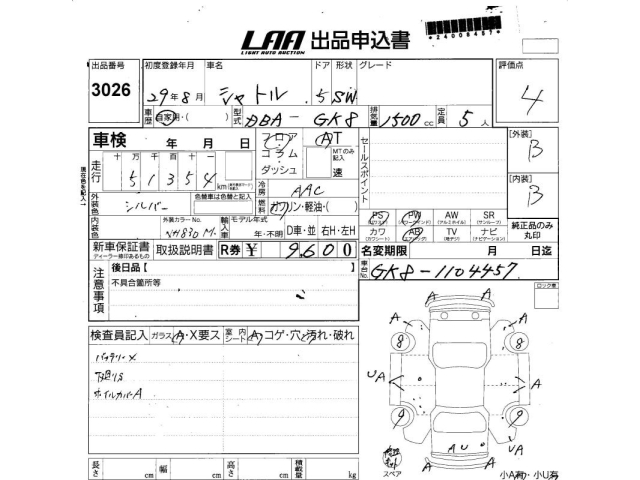 LAA 出品申込書
LIGHT AUTO AUCTION
*24008457*
出品番号
3026
初度登録年月
29年8月
車名
シャトル
ドア
5
形状
SW
グレード
評価点
4
車歴
自家用・( )
型式
DBA-GK8
排気量
1500 cc
定員
5 人
車検 年 月 日
フロア
コラム
ダッシュ
AT
MTのみ記入
速
セールスポイント
[外装]
B
[内装]
B
現在色を記入↓
走行
十 万 千 百 十 一
5 1 3 5 4
km
冷房
AAC
外装色
シルバー
色替車は色替と記入
燃料
ガソリン・軽油・( )
内装色
外装カラーNo.
NH830 M.
輸入車
モデル年式
年・不明
D車・並 右H・左H
PS PW AW SR
(パワステ) (パワーウインド) (アルミホイル) (サンルーフ)
カワ AB TV ナビ
(カワシート) (エアバッグ) (電デジ) (ナビゲーション)
純正品のみ丸印
新車保証書
ディーラー捺印あるもの
取扱説明書
R券 ¥ 9600
名変期限 月 日迄
車台No.
GK8-1104457
注意事項
後日品 [
不具合箇所等
ロック車
検査員記入
ガラス A・X要ス
室内シート A コゲ・穴・汚れ・破れ
バッテリーX
下廻りS
ホイルカバーA
A A
A A
8 8
U A A
9 9
A A U U A
A
スペア
長さ cm 幅 cm 高さ cm 積載量 kg
小A有・小U有